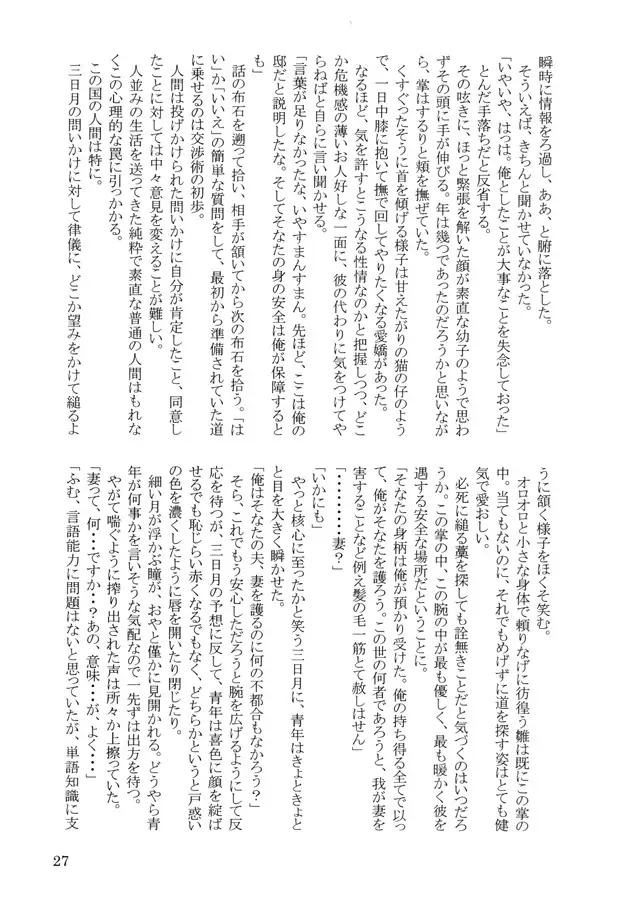 瞬時に情報をろ過し、ああ、と腑に落とした。
そういえば、きちんと聞かせていなかった。
「いやいや、はっは。俺としたことが大事なことを失念しておった」
とんだ手落ちだと反省する。
その呟きに、ほっと緊張を解いた顔が素直な幼子のようで思わ
ずその頭に手が伸びる。年は幾つであったのだろうかと思いなが
ら、掌はするりと頬を撫ぜていた。
くすぐったそうに首を傾げる様子は甘えたがりの猫の仔のよう
で、一日中膝に抱いて撫で回してやりたくなる愛嬌があった。
なるほど、気を許すとこうなる性情なのかと把握しつつ、どこ
か危機感の薄いお人好しな一面に、彼の代わりに気をつけてや
らねばと自らに言い聞かせる。
「言葉が足りなかったな、いやすまんすまん。先ほど、ここは俺の
邸だと説明したな。そしてそなたの身の安全は俺が保障すると
も」
話の布石を遡って拾い、相手が頷いてから次の布石を拾う。「は
い」か「いいえ」の簡単な質問をして、最初から準備されていた道
に乗せるのは交渉術の初歩。
人間は投げかけられた問いかけに自分が肯定したこと、同意し
たことに対しては中々意見を変えることが難しい。
人並みの生活を送ってきた純粋で素直な普通の人間はもれな
くこの心理的な罠に引っかかる。
この国の人間は特に。
三日月の問いかけに対して律儀に、どこか望みをかけて縋るよ
うに頷く様子をほくそ笑む。
オロオロと小さな身体で頼りなげに彷徨う雛は既にこの掌の
中。当てもないのに、それでもめげずに道を探す姿はとても健
気で愛おしい。
必死に縋る藁を探しても詮無きことだと気づくのはいつだろ
うか。この掌の中、この腕の中が最も優しく、最も暖かく彼を
遇する安全な場所だということに。
「そなたの身柄は俺が預かり受けた。俺の持ち得る全てで以っ
て、俺がそなたを護ろう。この世の何者であろうと、我が妻を
害することなど例え髪の毛一筋とて赦しはせん」
「・・・・・・・・・妻？」
「いかにも」
やっと核心に至ったかと笑う三日月に、青年はきょときょと
と目を大きく瞬かせた。
「俺はそなたの夫、妻を護るのに何の不都合もなかろう？」
そら、これでもう安心しただろうと腕を広げるようにして反
応を待つが、三日月の予想に反して、青年は喜色に顔を綻ば
せるでも恥じらい赤くなるでもなく、どちらかというと戸惑い
の色を濃くしたように唇を開いたり閉じたり。
細い月が浮かぶ瞳が、おやと僅かに見開かれる。どうやら青
年が何事かを言いそうな気配なので一先ずは出方を待つ。
やがて喘ぐように搾り出された声は所々か上擦っていた。
「妻って、何・・ですか・・？あの、意味・・・が、よく・・・」
「ふむ、言語能力に問題はないと思っていたが、単語知識に支
27